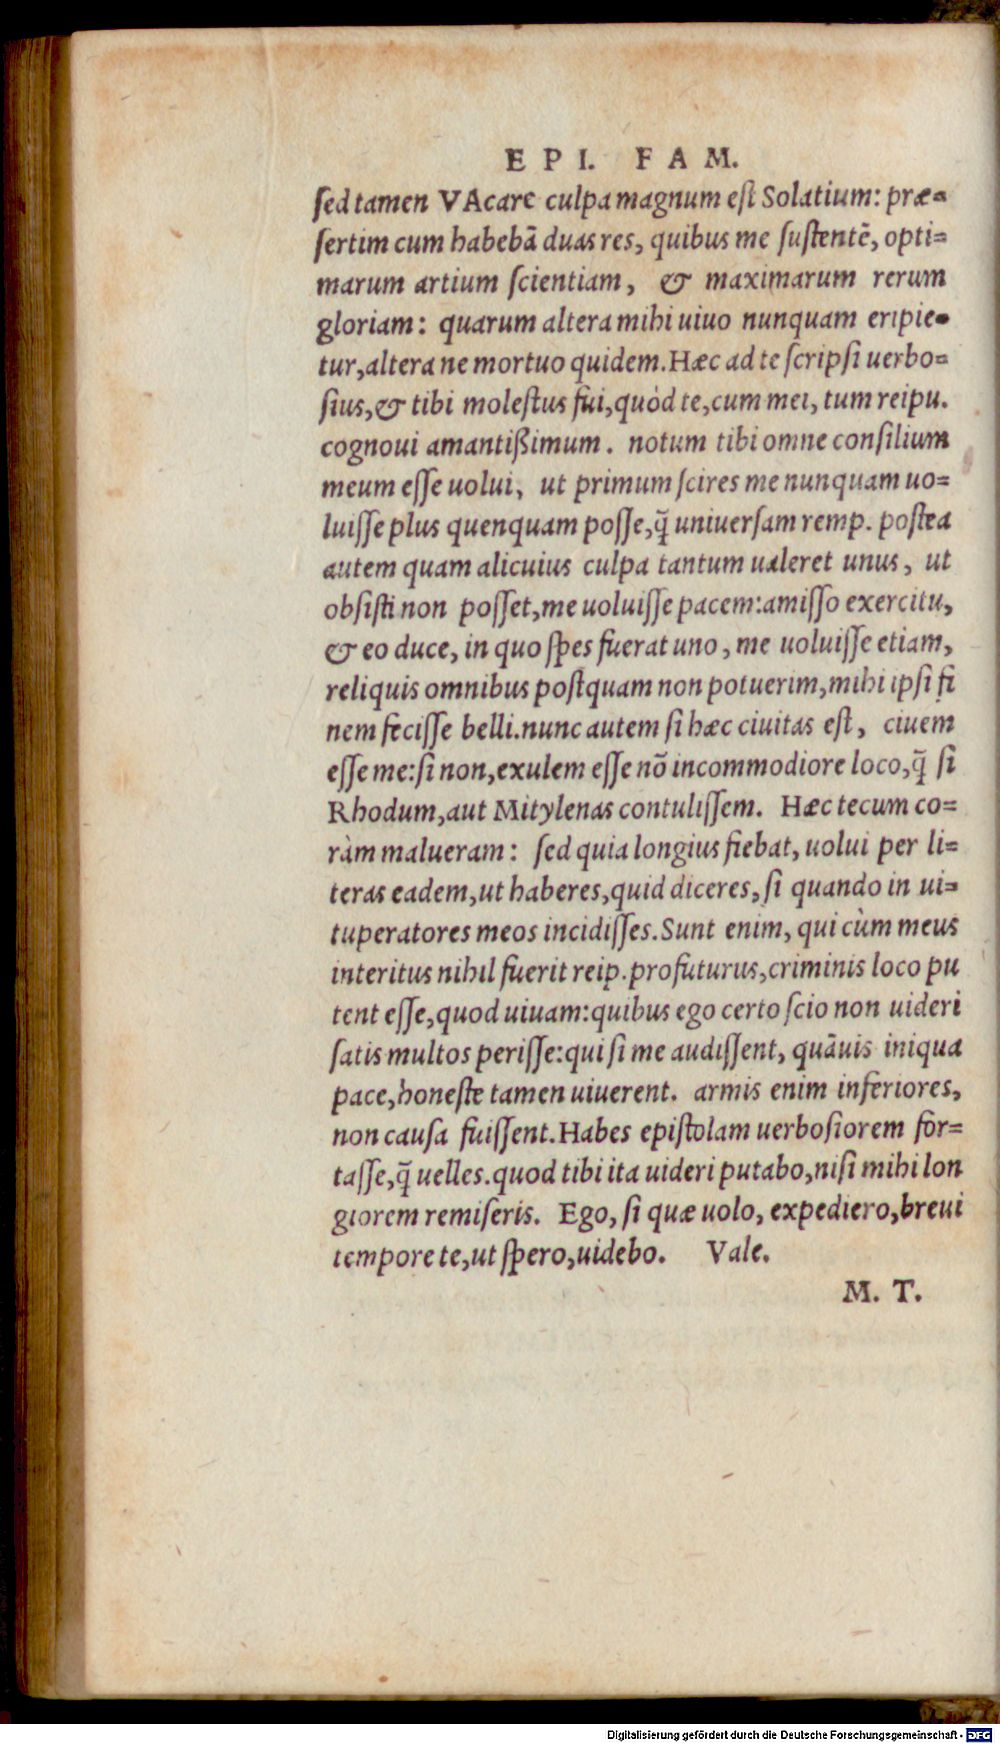 EPI. FAM.
ſed tamen VAcare culpa magnum eſt Solatium: præ-
ſertim cum habebā duas res, quibus me ſuſtentē, opti-
marum artium ſcientiam, & maximarum rerum
gloriam: quarum altera mihi uiuo nunquam eripie-
tur, altera ne mortuo quidem. Hæc ad te ſcripſi uerbo-
ſius, & tibi moleſtus fui, quòd te, cum mei, tum reipu.
cognoui amantißimum. notum tibi omne conſilium
meum eſſe uolui, ut primum ſcires me nunquam uo-
luiſſe plus quenquam poſſe, q̄ uniuerſam remp. poſtea
autem quam alicuius culpa tantum ualeret unus, ut
obſiſti non poſſet, me uoluiſſe pacem: amiſſo exercitu,
& eo duce, in quo ſpes fuerat uno, me uoluiſſe etiam,
reliquis omnibus poſtquam non potuerim, mihi ipſi fi
nem feciſſe belli. nunc autem ſi hæc ciuitas eſt, ciuem
eſſe me: ſi non, exulem eſſe nō incommodiore loco, q̄ ſi
Rhodum, aut Mitylenas contuliſſem. Hæc tecum co-
ràm malueram: ſed quia longius fiebat, uolui per li-
teras eadem, ut haberes, quid diceres, ſi quando in ui-
tuperatores meos incidiſſes. Sunt enim, qui cùm meus
interitus nihil fuerit reip. profuturus, criminis loco pu
tent eſſe, quod uiuam: quibus ego certo ſcio non uideri
ſatis multos periſſe: qui ſi me audiſſent, quāuis iniqua
pace, honeſte tamen uiuerent. armis enim inferiores,
non cauſa fuiſſent. Habes epiſtolam uerboſiorem for-
taſſe, q̄ uelles. quod tibi ita uideri putabo, niſi mihi lon
giorem remiſeris. Ego, ſi quæ uolo, expediero, breui
tempore te, ut ſpero, uidebo. Vale.
M. T.
Digitalisierung gefördert durch die Deutsche Forschungsgemeinschaft - DFG